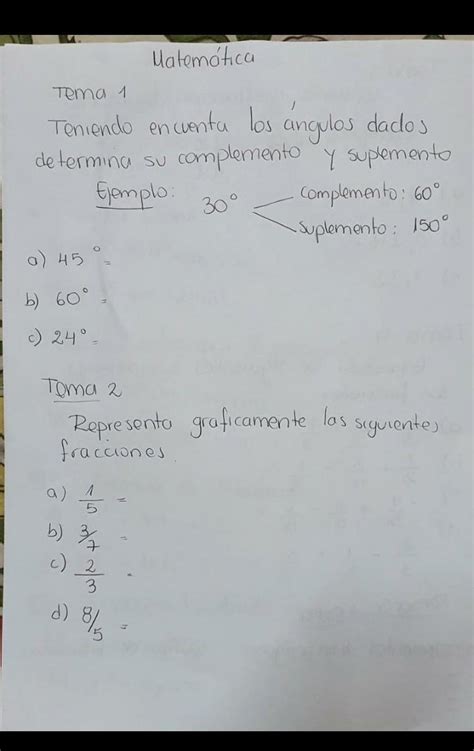 Matemótica
Tema 1
Teniendo encuenta los ángulos dados
determina su complemento y suplemento
Ejemplo: 30° Complemento: 60°
Suplemento: 150°
a) 45° =
b) 60° =
c) 24° =
Tema 2
Represento graficamente las siguientes
fracciones
a) 1/5 =
b) 3/7 =
c) 2/3 =
d) 8/5 =